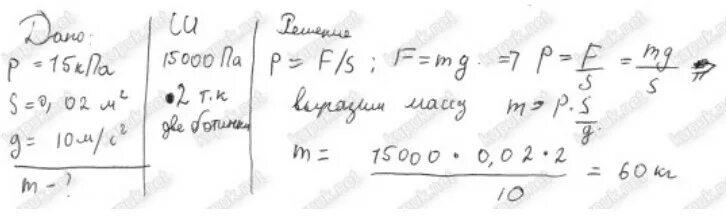 Дано:
P = 15 кПа
S = 0,02 м²
g = 10 м/с²
m - ?
СИ
15000 Па
·2 т.к
две ботинки
Решение
P = F/S ; F = mg. => P = F/S = mg/S =>
выразим массу m = P · S/g
m = 15000 · 0,02 · 2 / 10 = 60 кг
kupuk.net